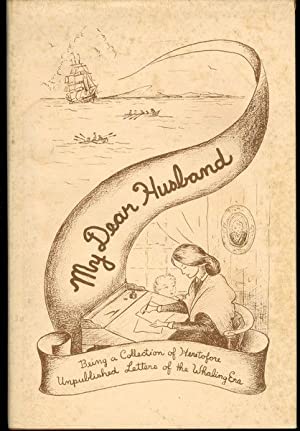 My Dear Husband
Being a Collection of Heretofore
Unpublished Letters of the Whaling Era